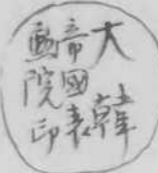 大韓
帝國表
勳院印